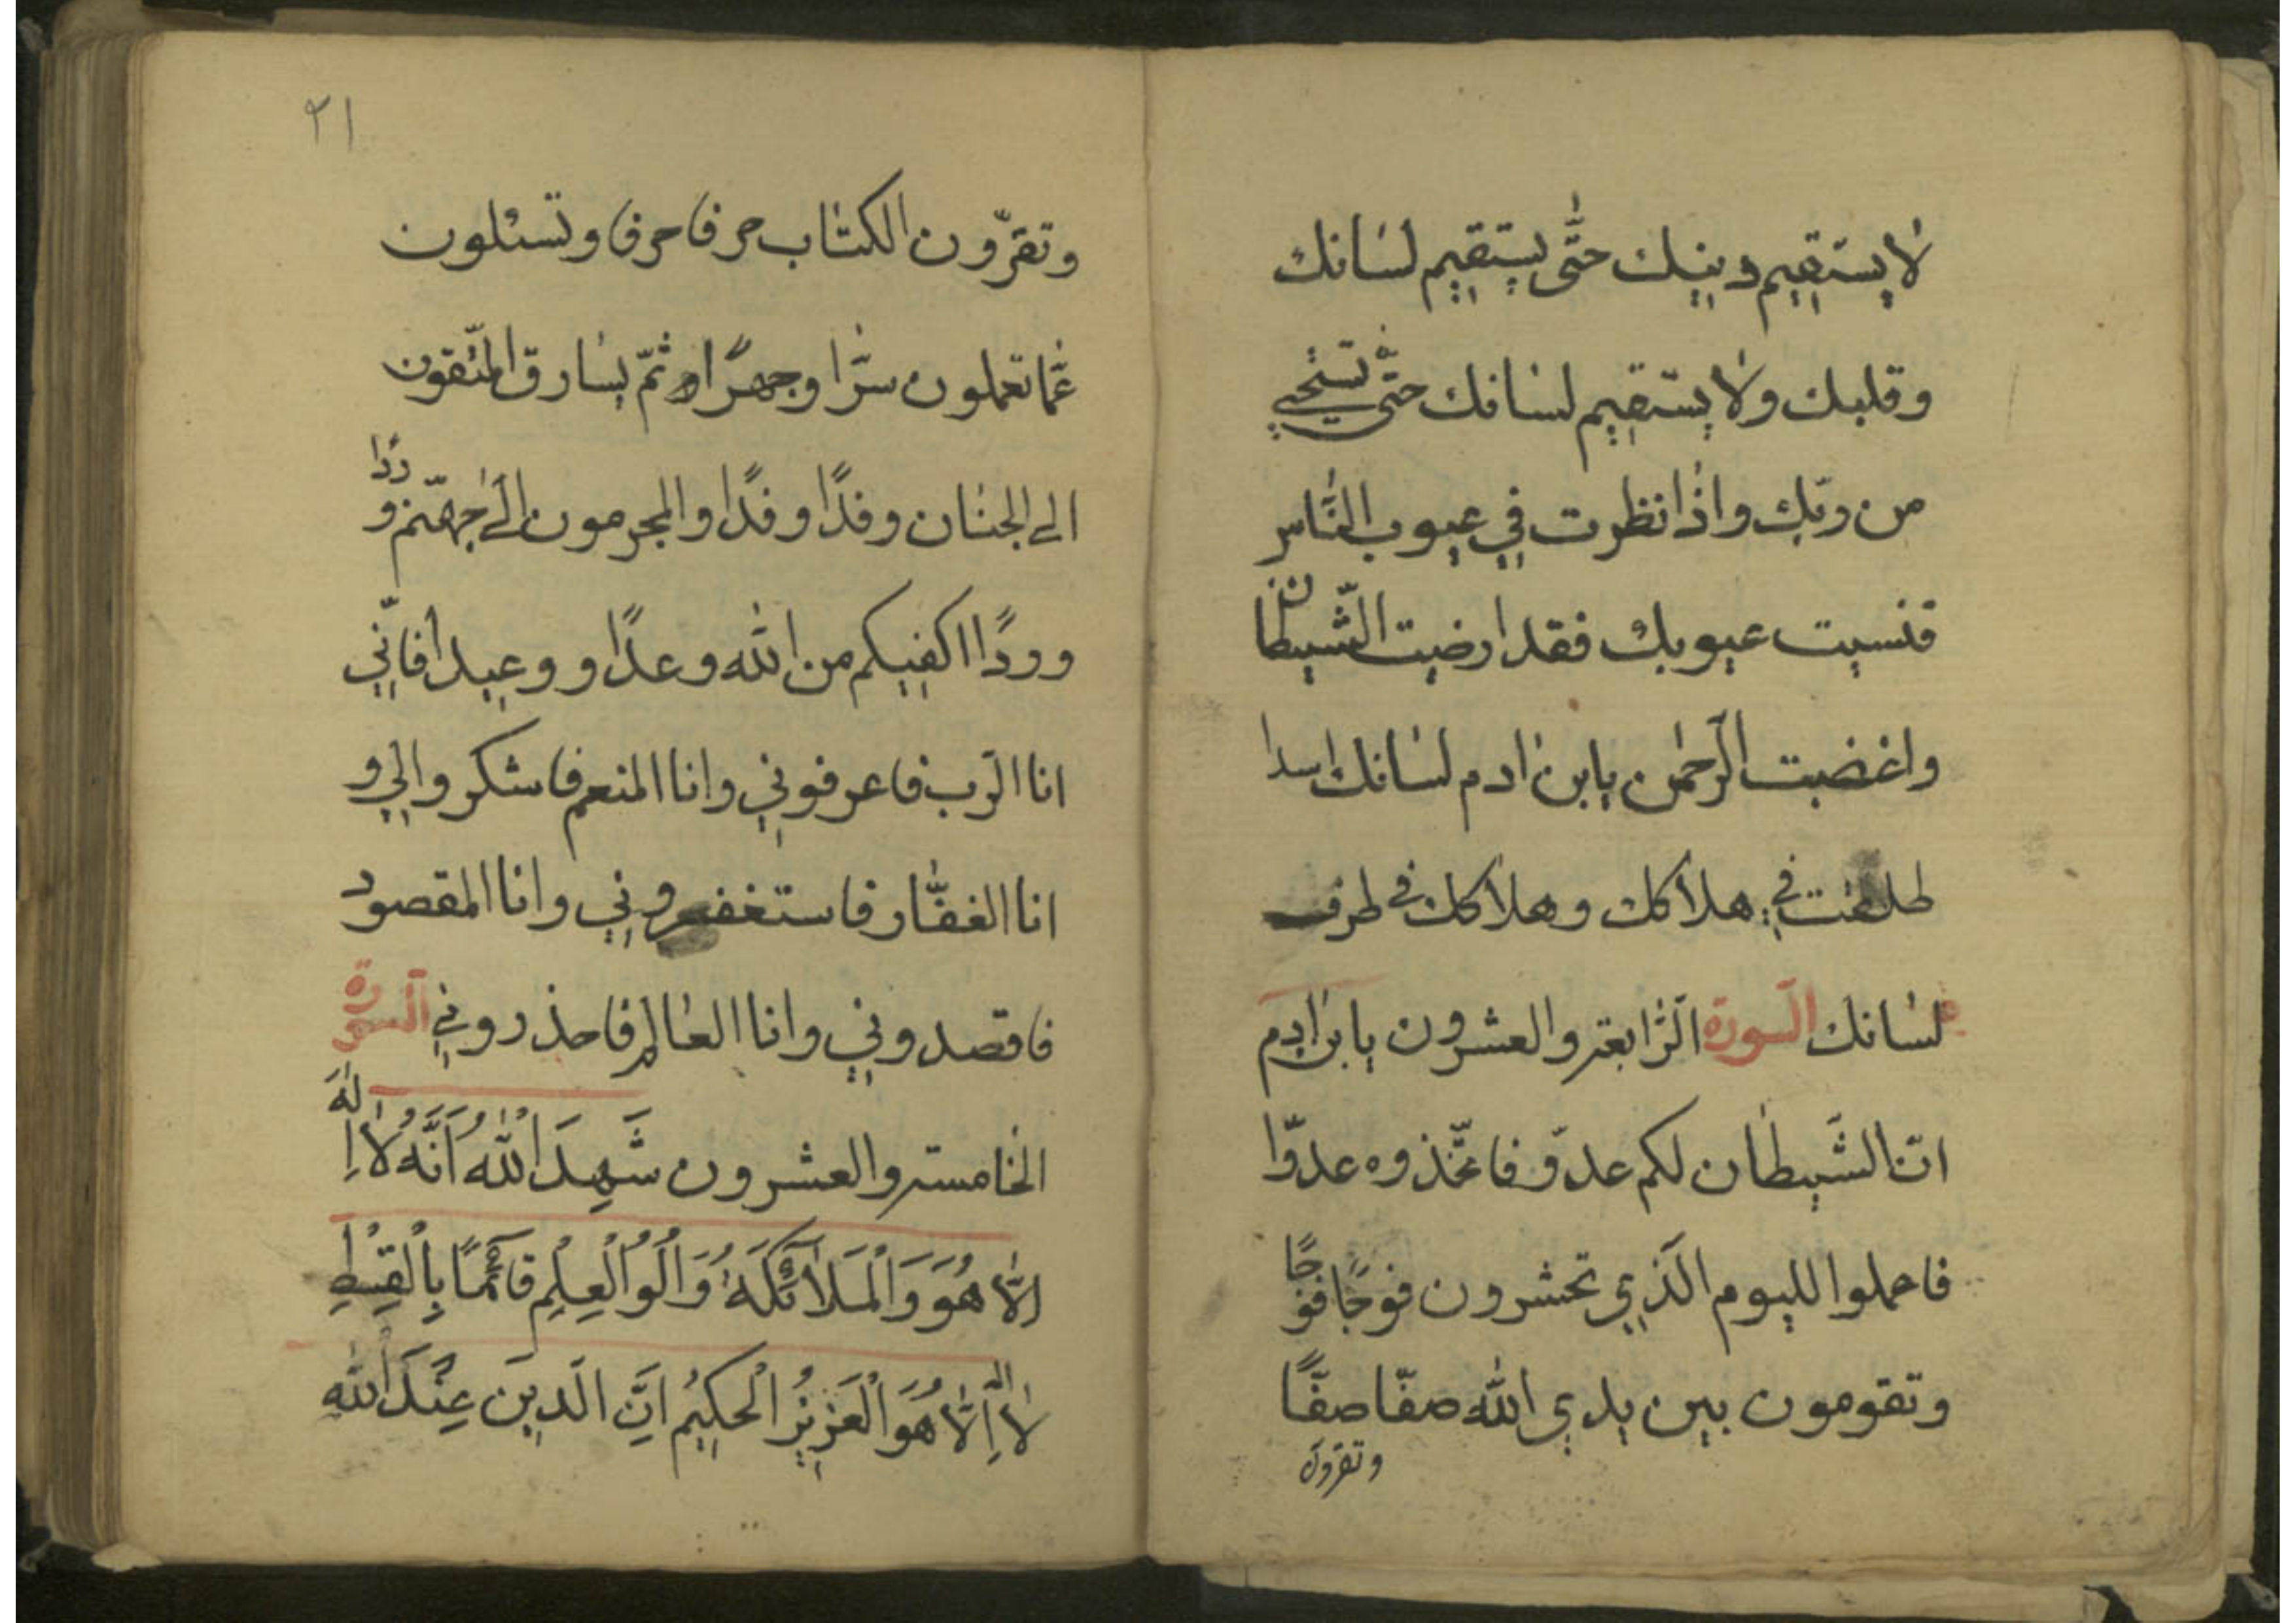 لا يستقيم دينك حتّى يستقيم لسانك
وقلبك ولا يستقيم لسانك حتّى تستحيي
من ربّك واذا نظرت في عيوب النّاس
فنسيت عيوبك فقد ارضيت الشّيطان
واغضبت الرّحمن يابن ادم لسانك اسد ا
طلقت في هلاكك وهلاكك في طرف
لسانك السورة الرّابعة والعشرون يابن ادم
انّ الشّيطان لكم عدوّ فاتّخذوه عدوّا
فاعملوا لليوم الّذي تحشرون فوجًا فوجًا
وتقومون بين يدي الله صفّا صفًّا
وتقرون
٢١
وتقرّون الكتاب حرفا حرفا وتسئلون
عمّا تعملون سرّا وجهرًا ثمّ يساق المتّقون
الى الجنان وفدًا وفدًا والمجرمون الى جهنّم وردًا
ووردًا اكفيكم من الله وعدًا ووعيدا فانّي
انا الرّب فاعرفوني وانا المنعم فاشكروالي و
انا الغفّار فاستغفروني وانا المقصود
فاقصدوني وانا العالم فاحذروني السورة
الخامسة والعشرون شَهِدَ اللهُ اَنَّهُ لا اِلهَ
اِلّا هُوَ وَالْمَلائِكَةُ وَاُلُوا الْعِلْمِ قائِمًا بِالْقِسْطِ
لا اِله اِلّا هُوَ الْعَزِيزُ الْحَكِيمُ اِنَّ الّدِينَ عِنْدَ اللهِ